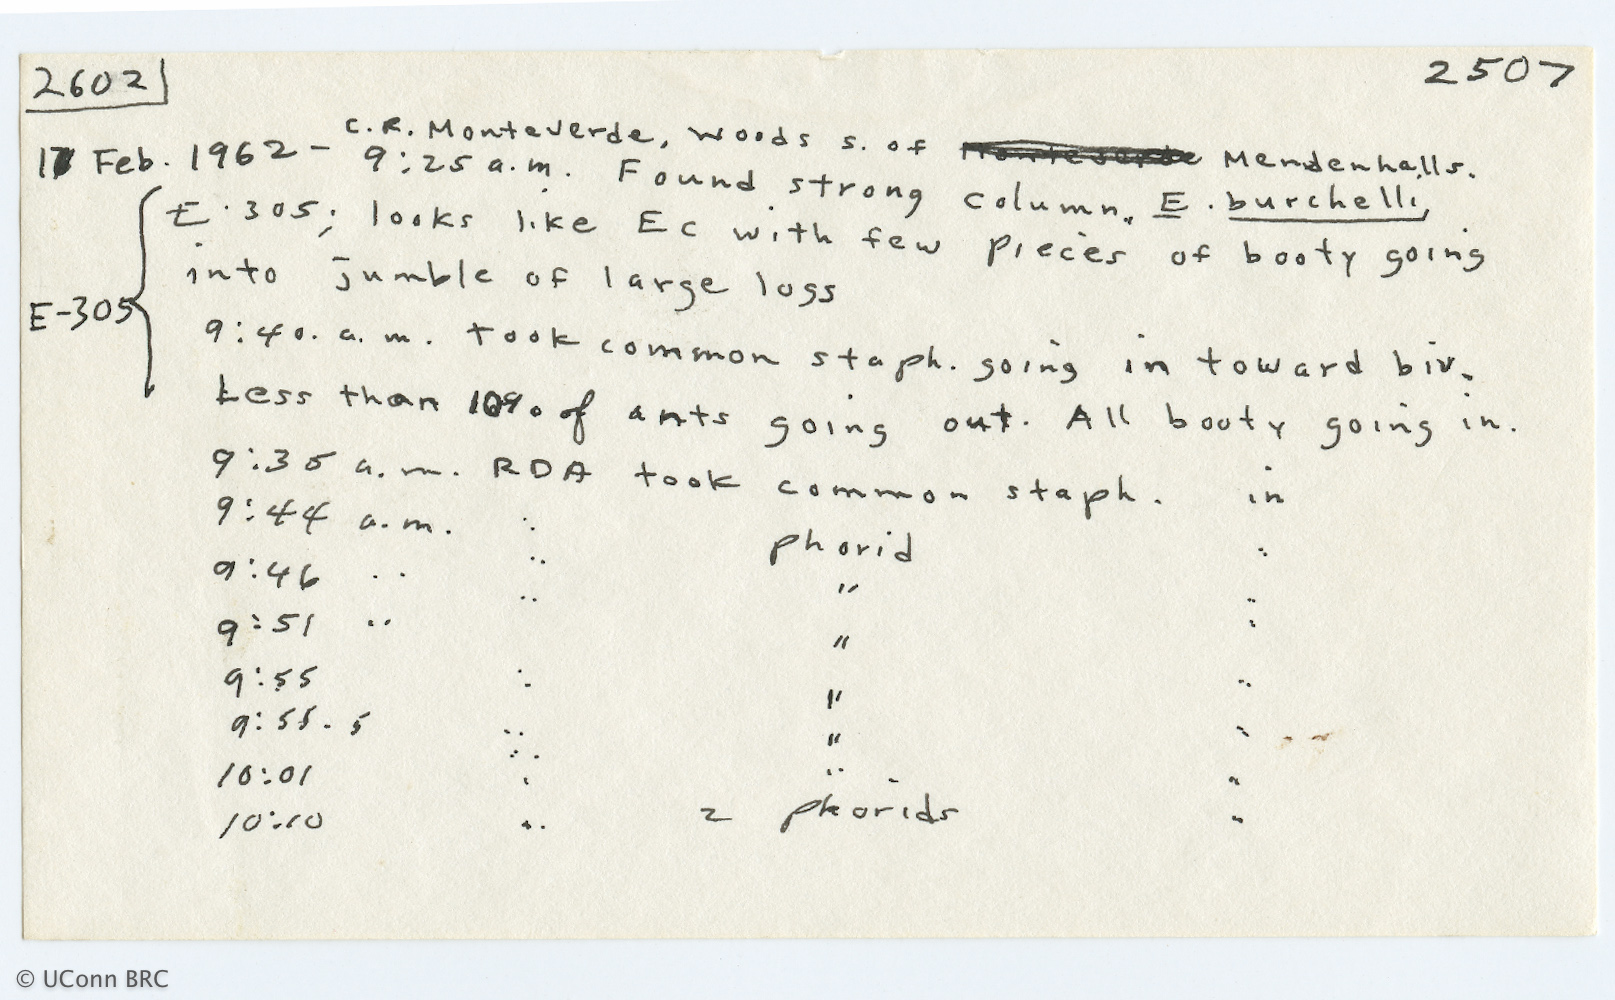 2602 2507
C.R. Monteverde, woods s. of Mendenhalls.
17 Feb. 1962 - 9:25 a.m. Found strong column, E. burchelli,
E-305; looks like Ec with few pieces of booty going
into jumble of large logs
E-305
9:40. a.m. took common staph. going in toward biv.
Less than 10% of ants going out. All booty going in.
9:35 a.m. RDA took common staph. in
9:44 a.m. " phorid "
9:46 " " " "
9:51 " " " "
9:55 " " "
9:55.5 " " "
10:01 " " "
10:10 " 2 phorids "
© UConn BRC